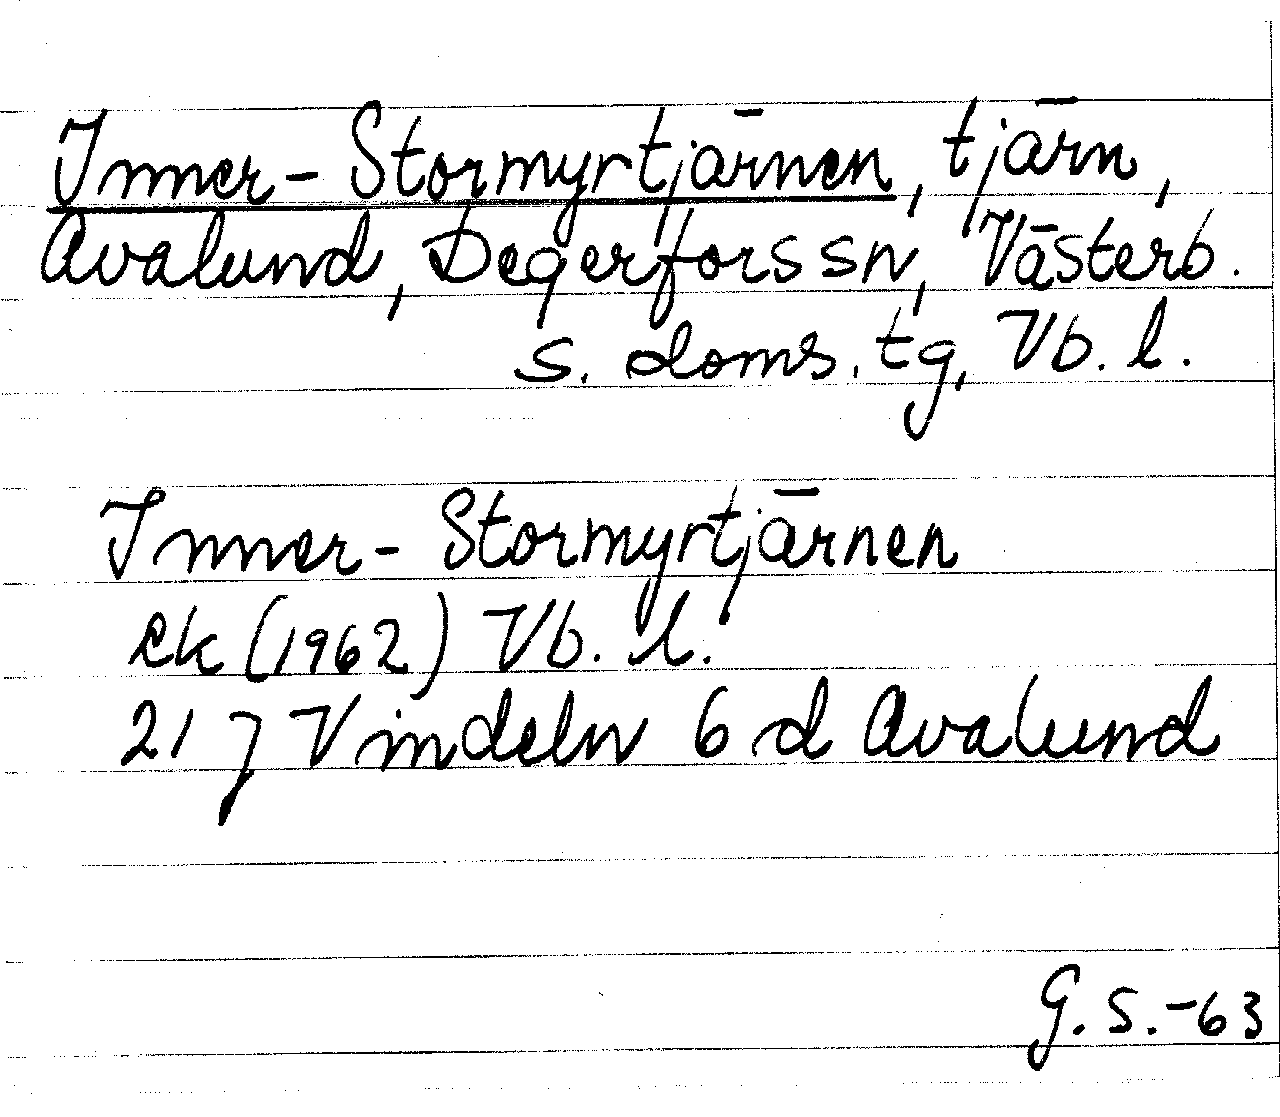 Inner-Stormyrtjärnen, tjärn,
Avalund, Degerfors sn, Västerb.
s. doms. tg, Vb. l.
Inner-Stormyrtjärnen
ek (1962) Vb. l.
21 J Vindeln 6 d Avalund
G. S. -63